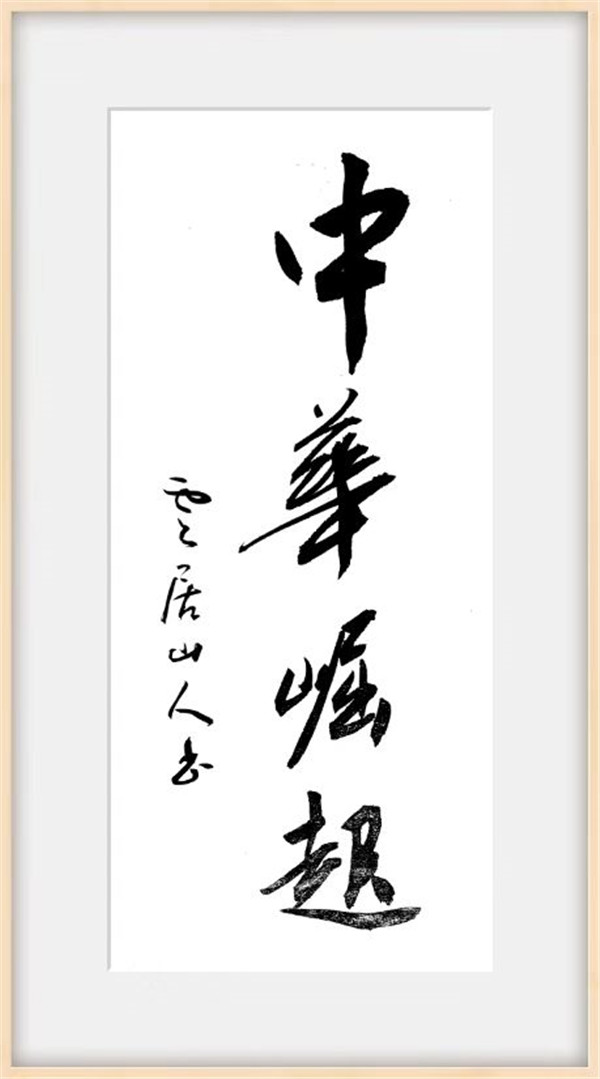 中華崛起
雲居山人書